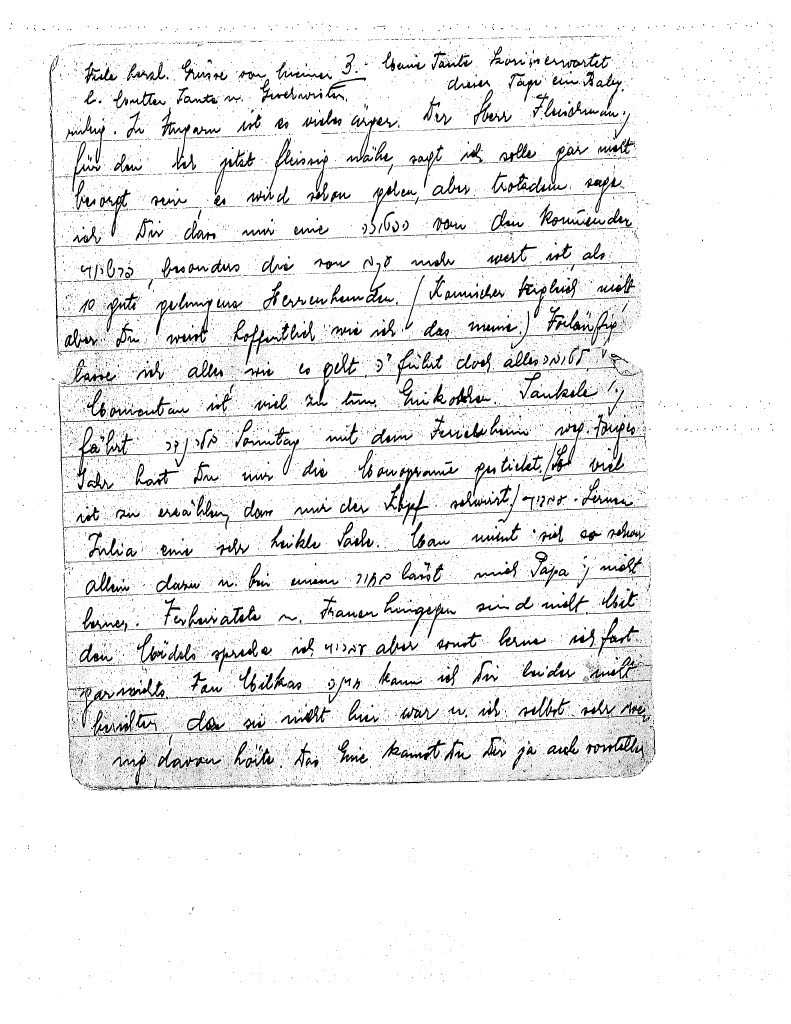 Viele herzl. Grüsse von meiner 3. Meine Tante Koni erwartet
l. Mutter, Tante u. Geschwister. dieser Tage ein Baby.
ruhig. In Ungarn ist es vieles ärger. Der Herr Fleischman,
für den ich jetzt fleissig nähe, sagt ich solle gar nicht
besorgt sein, es wird schon gehen, aber trotzdem sage
ich Dir dass mir eine von den kommenden
besonders die von mehr wert ist, als
10 gute gelungene Herrenhemden. (Komischer Vergleich nicht,
aber Du weisst hoffentlich wie ich das meine.) Vorläufig
lasse ich alles, wie es geht führt doch alles
Momentan ist viel zu tun.
fährt Sonntag mit dem Ferienheim weg. Voriges
Jahr hast Du mir die Monogramme gestickt. (So viel
ist zu erzählen, dass mir der Kopf schwirrt) עברית - Lernen
Julia eine sehr heikle Sache. Man nimmt sich so schon
allein dazu u. bei einem בחור lässt mich Papa nicht
lernen. Verheiratete u. Frauen hingegen sind nicht. Mit
den Mädels spreche ich עברית aber sonst lerne ich fast
gar nichts. Von Milkas חתונה kann ich Dir leider nicht
berichten, da sie nicht hier war u. ich selbst sehr we-
nig davon hörte. Das Eine kannst Du Dir ja auch vorstellen